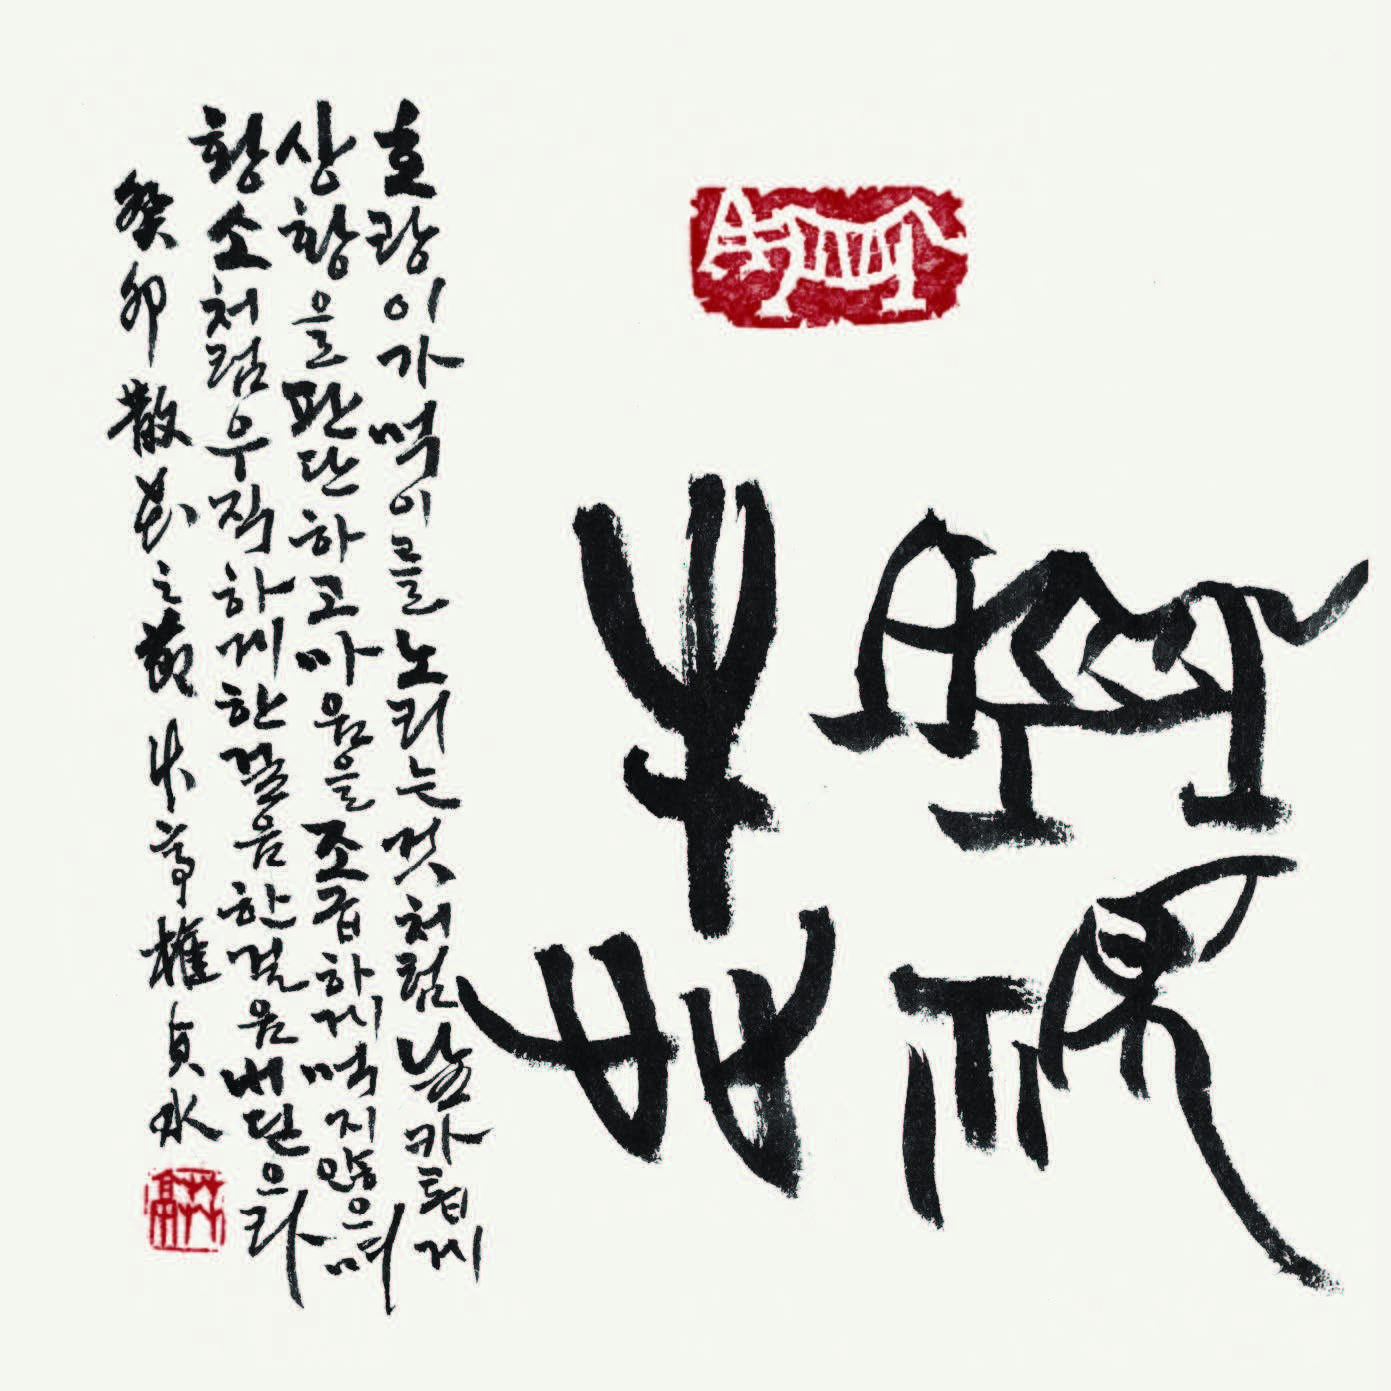 虎視
牛步
호랑이가먹이를노리는것처럼날카롭게
상황을판단하고마음을조급하게먹지않으며
황소처럼우직하게한걸음한걸음내딛으라
癸卯散花之節 權貞水